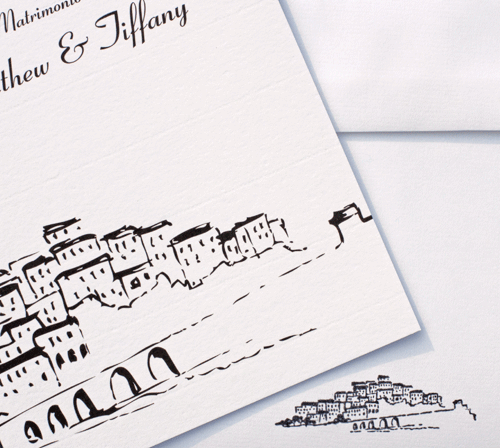 Matrimonio
thew & Tiffany